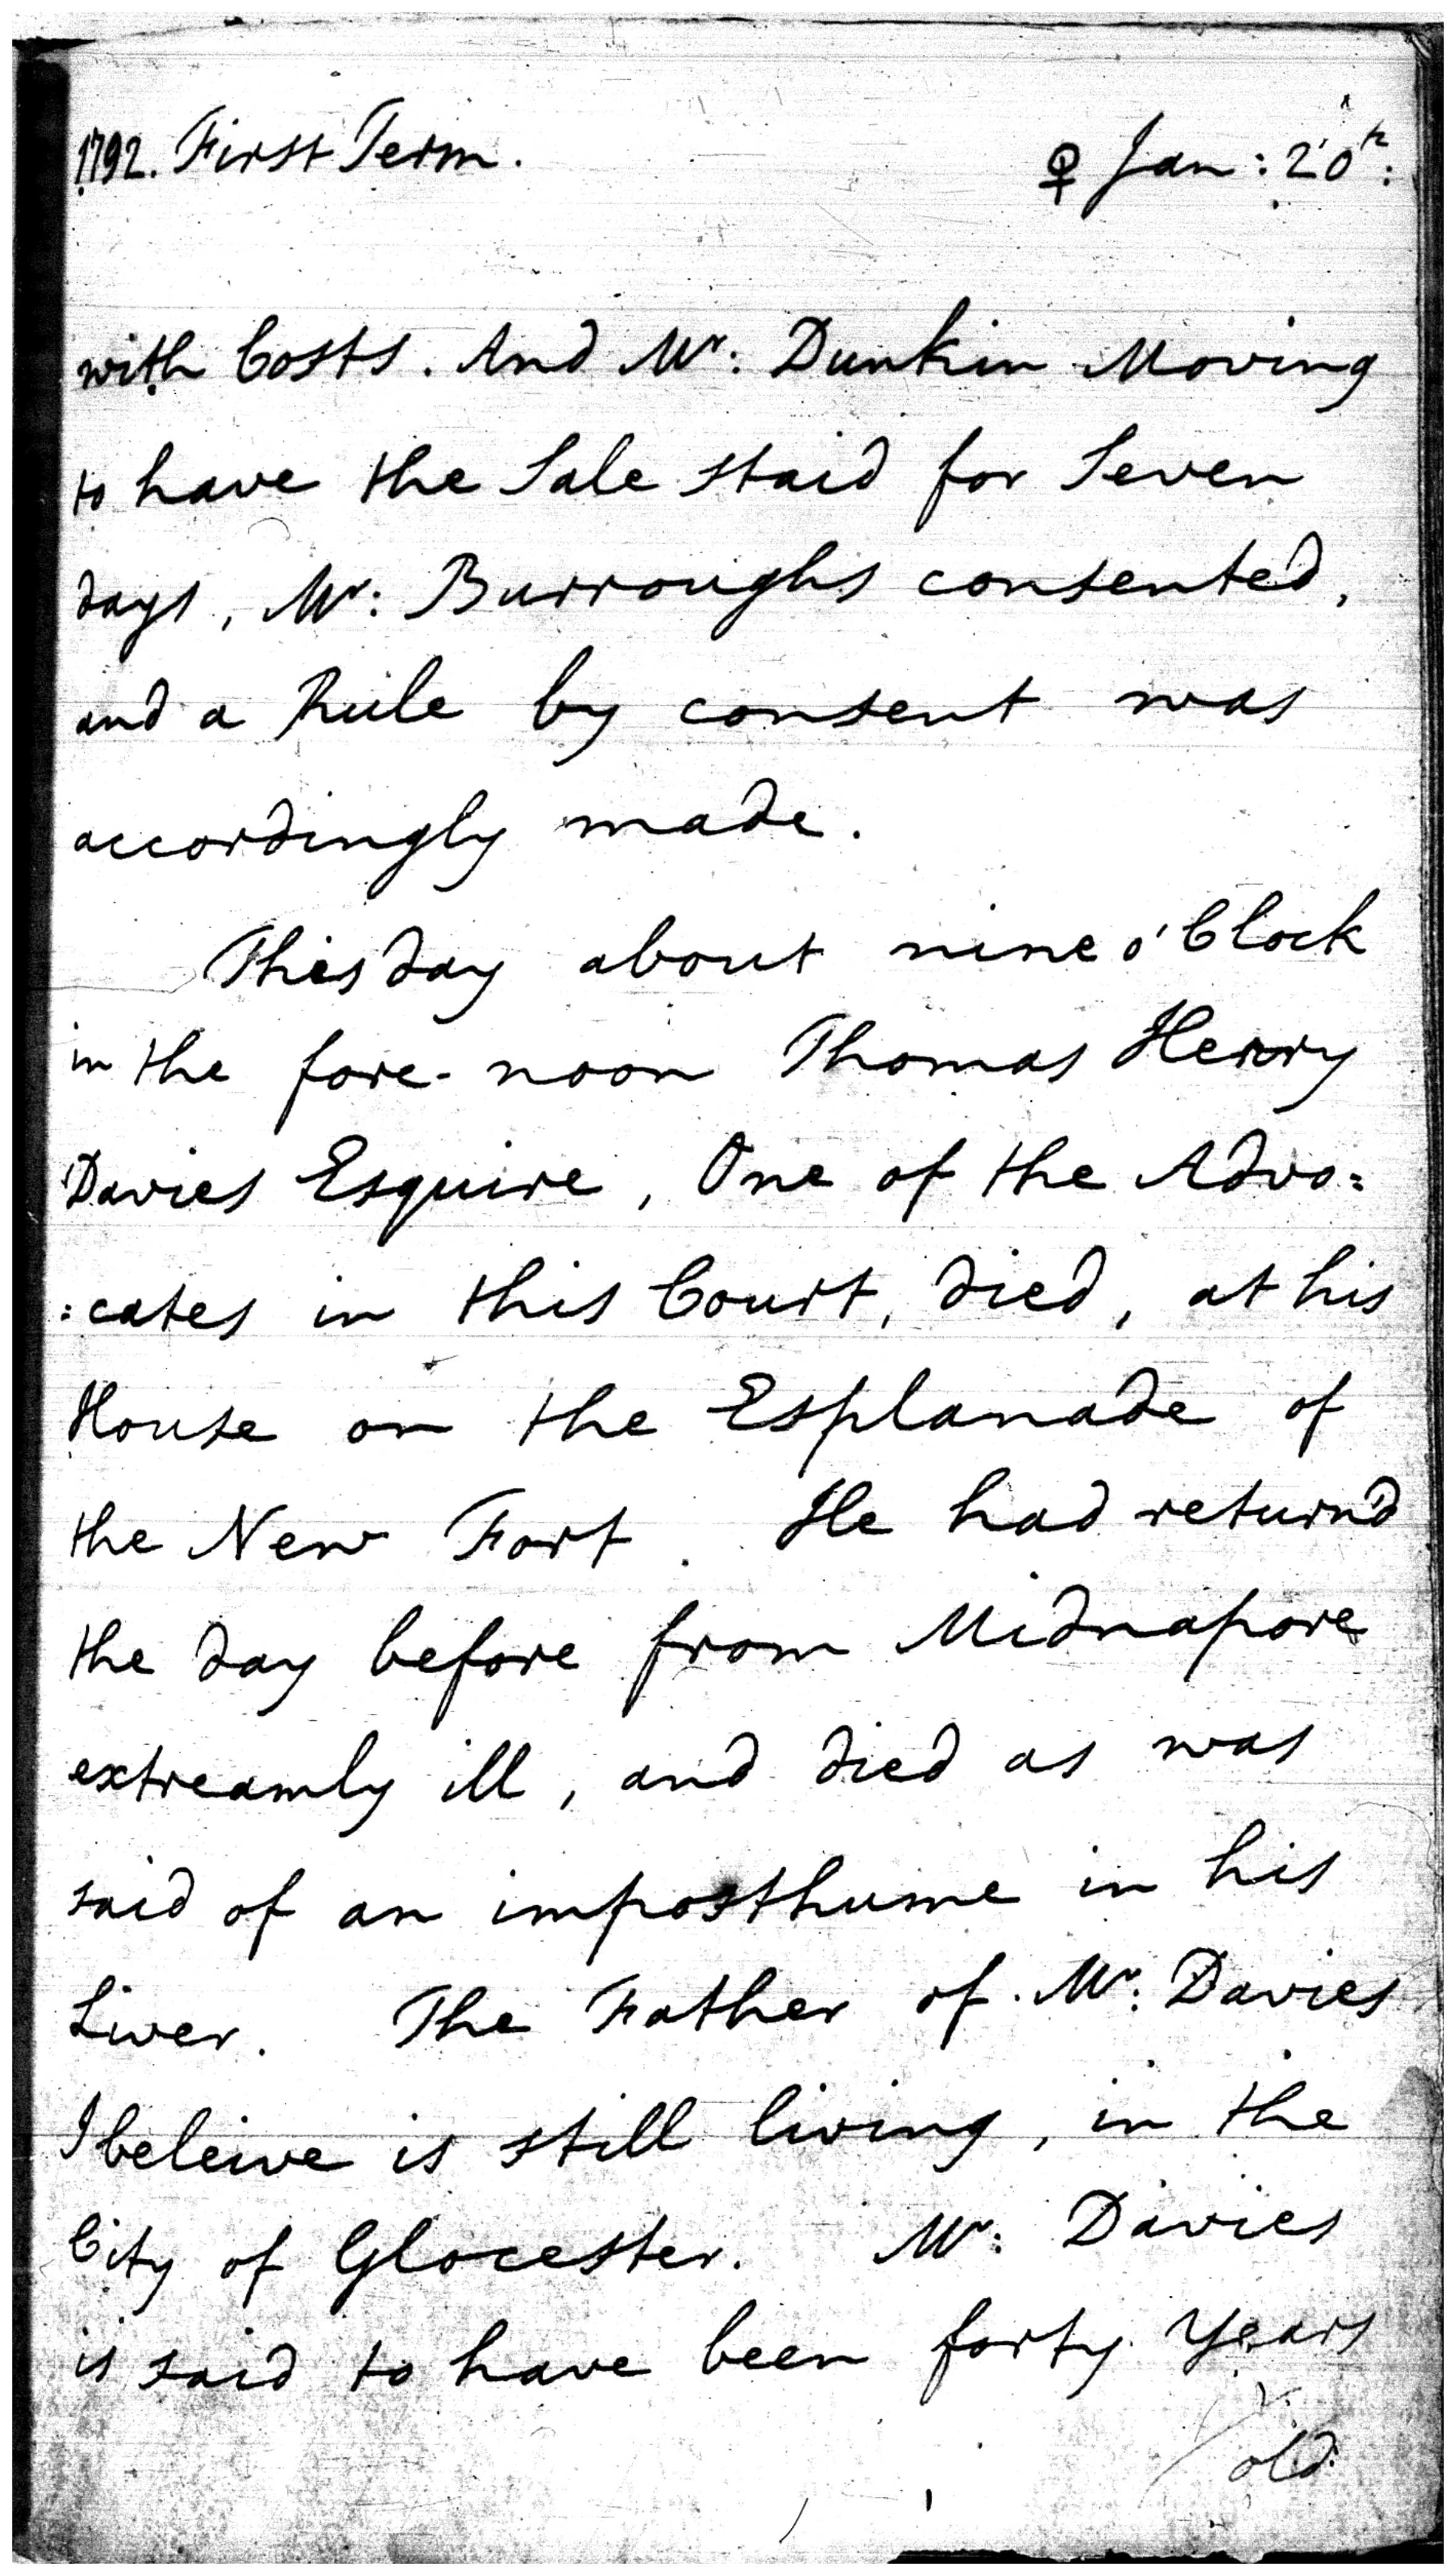 1792. First Term. ♀ Jan: 20th:
with Costs. And Mr: Dunkin Moving
to have the Sale staid for Seven
days, Mr: Burroughs consented,
and a Rule by consent was
accordingly made.
This day about nine o'Clock
in the fore-noon Thomas Henry
Davies Esquire, One of the Advo=
:cates in this Court, died, at his
House on the Esplanade of
the New Fort. He had return'd
the day before from Midnapore
extreamly ill, and died as was
said of an imposthume in his
Liver. The Father of Mr: Davies
I beleive is still living, in the
City of Glocester. Mr: Davies
is said to have been forty years
old